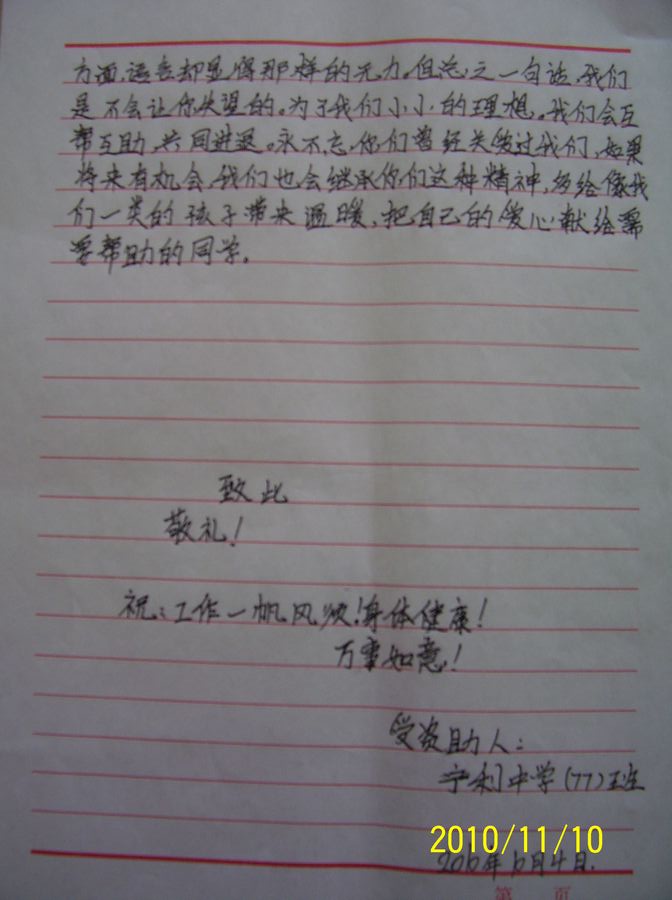 方面,语言却显得那样的无力。但总之一句话,我们
是不会让你失望的。为了我们小小的理想。我们会互
帮互助,共同进退。永不忘,你们曾经关爱过我们,如果
将来有机会,我们也会继承你们这种精神,多给像我
们一类的孩子带来温暖,把自己的爱心献给需
要帮助的同学。
致此
敬礼!
祝:工作一帆风顺!身体健康!
万事如意!
受资助人:
宁利中学(77)班
2010/11/10
年6月4日.
第 页